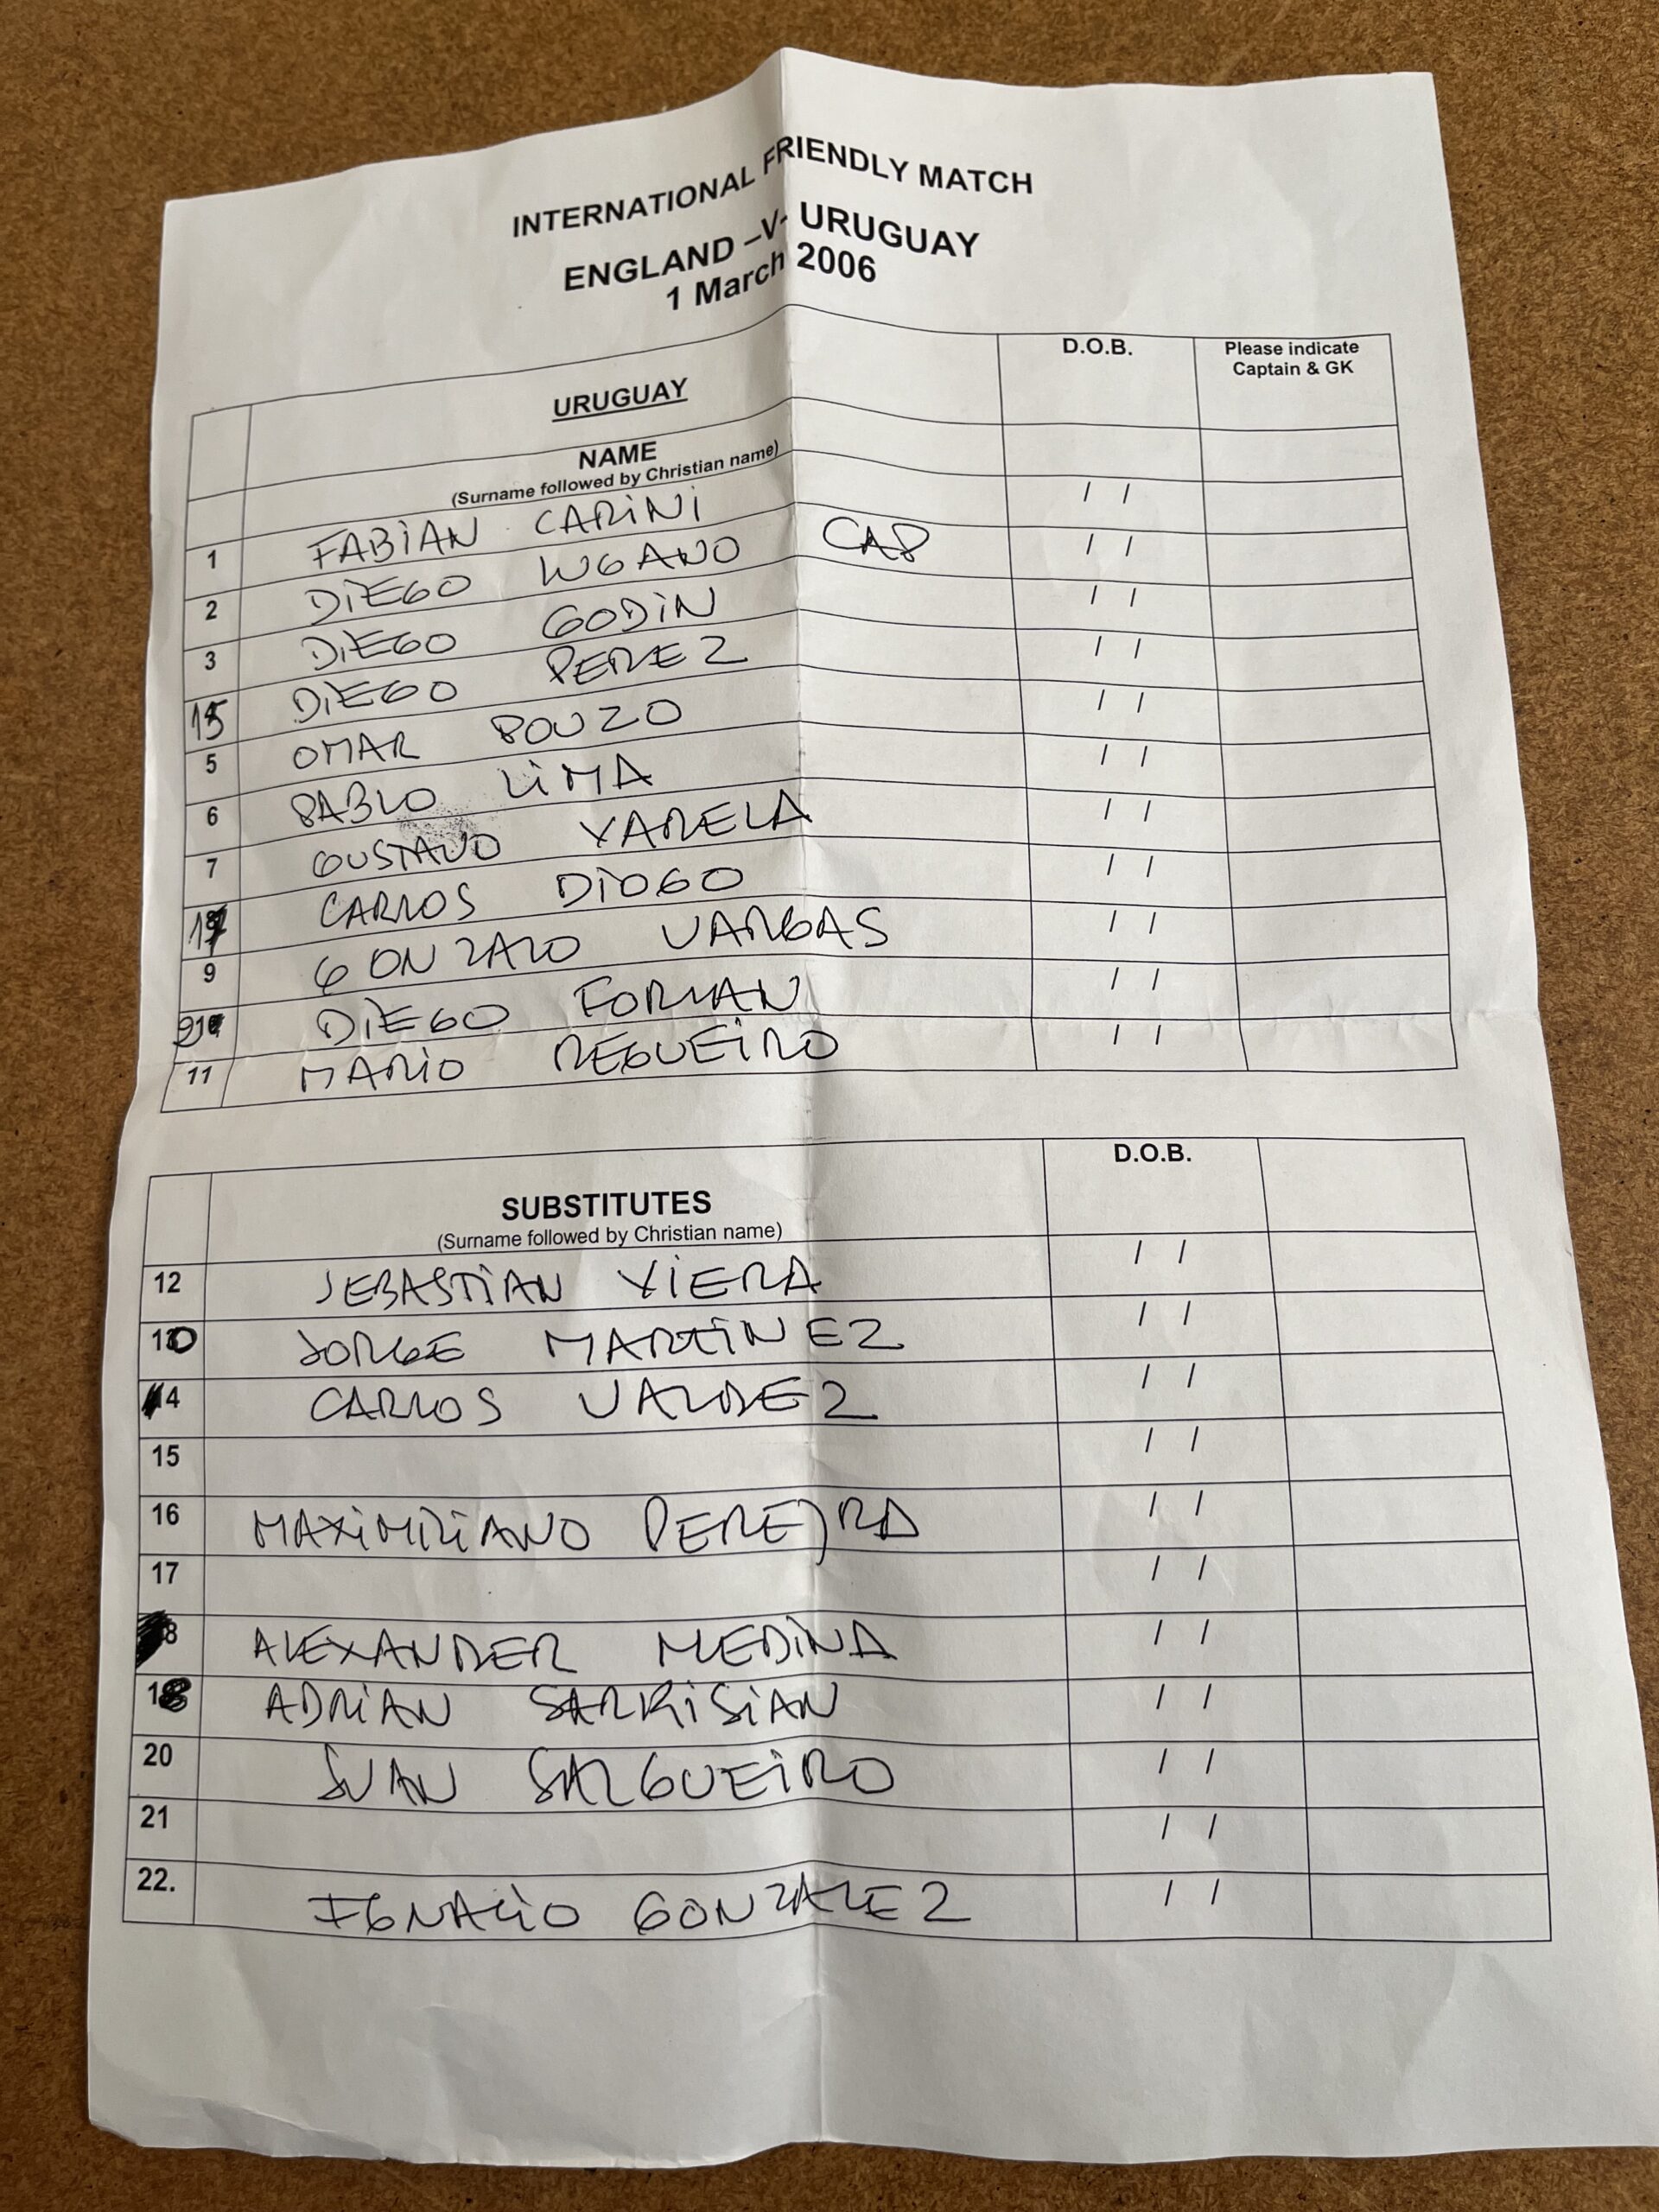 INTERNATIONAL FRIENDLY MATCH
ENGLAND –V- URUGUAY
1 March 2006
URUGUAY D.O.B. Please indicate
Captain & GK
NAME
(Surname followed by Christian name)
1 FABIAN CARINI / /
2 DIEGO LUGANO CAP / /
3 DIEGO GODIN / /
15 DIEGO PEREZ / /
5 OMAR POUZO / /
6 PABLO LIMA / /
7 GUSTAVO VARELA / /
CARLOS DIOGO / /
9 GONZALO VARGAS / /
DIEGO FORLAN / /
11 MARIO REGUEIRO / /
SUBSTITUTES D.O.B.
(Surname followed by Christian name)
12 SEBASTIAN VIERA / /
10 JORGE MARTINEZ / /
4 CARLOS VALDEZ / /
15 / /
16 MAXIMILIANO PEREJRA / /
17 / /
8 ALEXANDER MEDINA / /
18 ADRIAN SARKISIAN / /
20 JUAN SALGUEIRO / /
21 / /
22. IGNACIO GONZALEZ / /